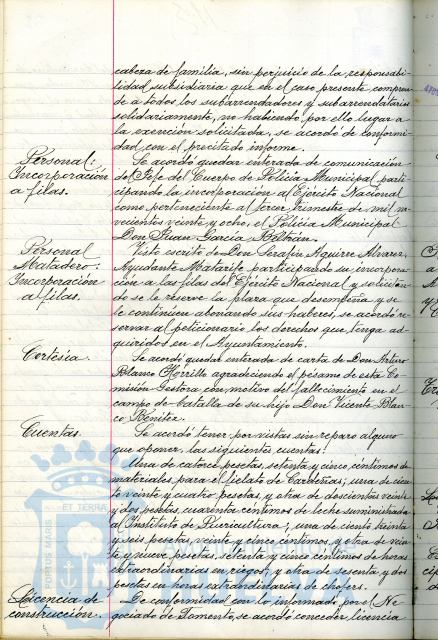 cabeza de familia, sin perjuicio de la responsabi-
lidad subsidiaria que en el caso presente compren-
de a todos los subarrendadores y subarrendatarios
solidariamente, no habiendo por ello lugar a
la exención solicitada, se acordó de conformi-
dad con el precitado informe.
Personal:
Incorporación
a filas.
Se acordó quedar enterada de comunicación
del Jefe del Cuerpo de Policía Municipal parti-
cipando la incorporación al Ejército Nacional
como perteneciente al tercer trimestre de mil no-
vecientos veinte y ocho, el Policía Municipal
Don Juan García Beltrán.
Personal
Matadero:
Incorporación
a filas.
Visto escrito de Don Serafín Aguirre Alvarez,
Ayudante Matarife participando su incorpora-
ción a las filas del Ejército Nacional y solicitan-
do se le reserve la plaza que desempeña y se
le continúen abonando sus haberes, se acordó re-
servar al peticionario los derechos que tenga ad-
quiridos en el Ayuntamiento.
Cortesía.
Se acordó quedar enterada de carta de Don Arturo
Blanco Horrillo agradeciendo el pésame de esta Co-
misión Gestora con motivo del fallecimiento en el
campo de batalla de su hijo Don Vicente Blan-
co Benítez.
Cuentas.
Se acordó tener por vistas sin reparo alguno
que oponer, las siguientes cuentas:
Una de catorce pesetas, setenta y cinco céntimos de
materiales para el fielato de Carberías; una de cien-
to veinte y cuatro pesetas, y otra de doscientas veinte
y dos pesetas, cuarenta céntimos de leche suministrada
al Instituto de Puericultura; una de ciento treinta
y seis pesetas, veinte y cinco céntimos, y otra de vein-
te y nueve pesetas, setenta y cinco céntimos de horas
extraordinarias en riegos; y otra de sesenta y dos
pesetas en horas extraordinarias de chófers.
Licencia de
construcción.
De conformidad con lo informado por el Ne-
gociado de Fomento, se acordó conceder licencia
ET TERRA
PORTUS MARIS